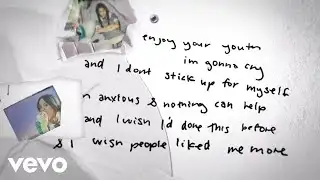 enjoy your youth
im gonna cry
and I dont stick up for myself
anxious & nothing can help
and I wish I'd done this before
& I wish people liked me more
vevo